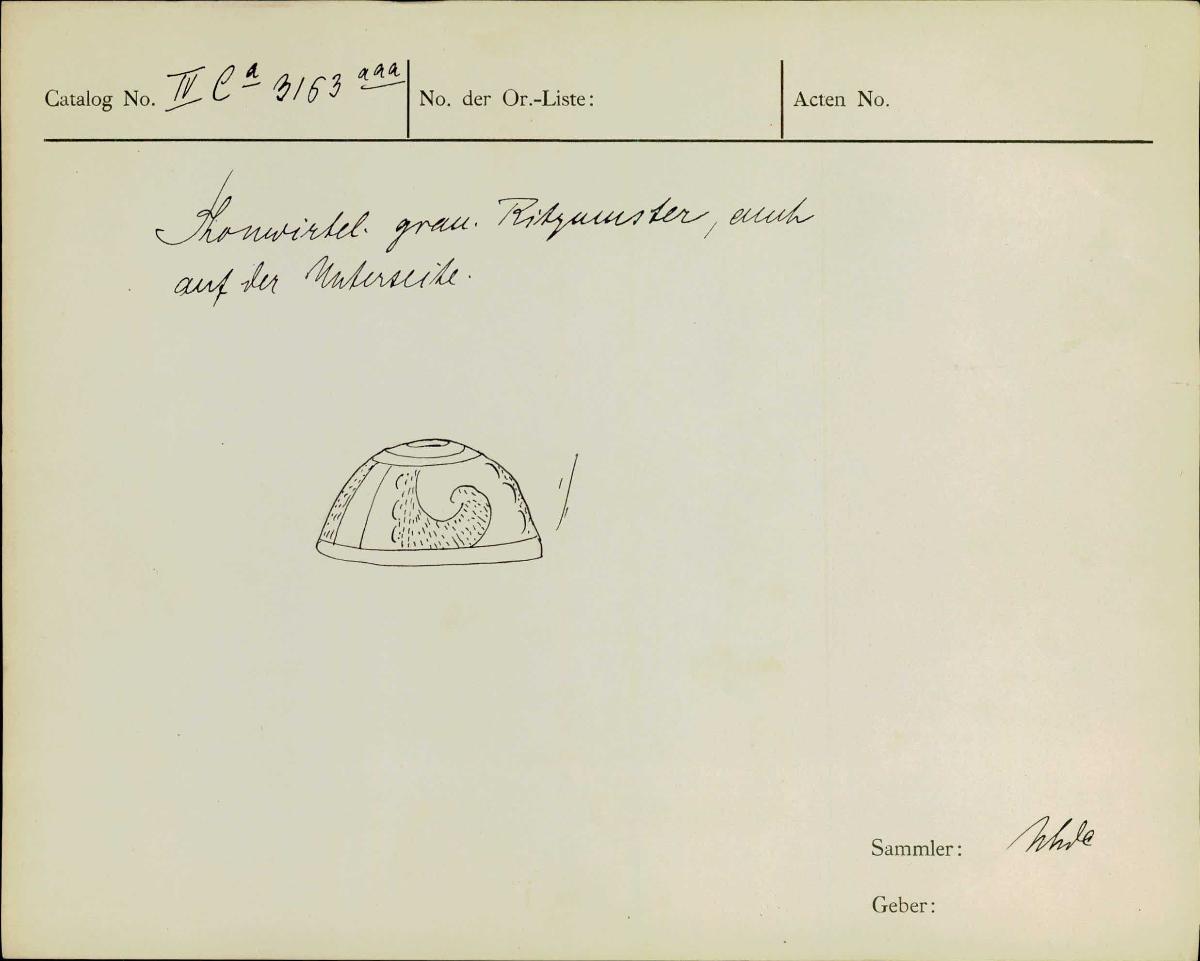 Catalog No. IV Ca 3163 aaa No. der Or.-Liste: Acten No.
Thonwirtel. grau. Ritzmuster, auch
auf der Unterseite.
Sammler: Uhde
Geber: